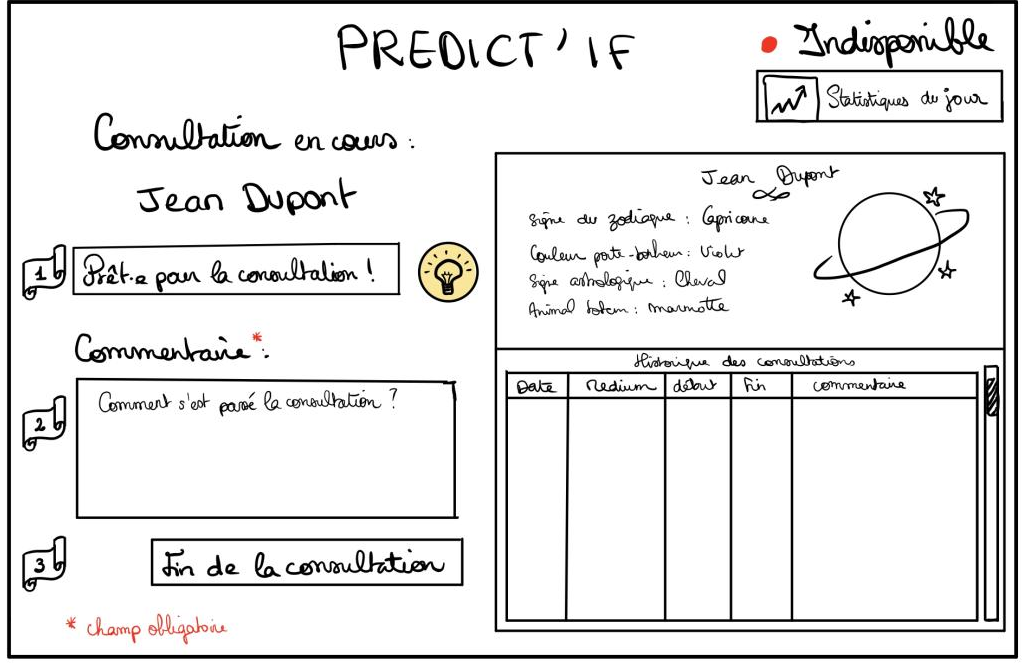 PREDICT'IF
Indisponible
Statistiques du jour
Consultation en cours :
Jean Dupont
1
Prêt·e pour la consultation !
Commentaire* :
2
Comment s'est passé la consultation ?
3
Fin de la consultation
* champ obligatoire
Jean Dupont
Signe du zodiaque : Capricorne
Couleur porte-bonheur : Violet
Signe astrologique : Cheval
Animal totem : marmotte
Historique des consultations
Date Medium début fin commentaire